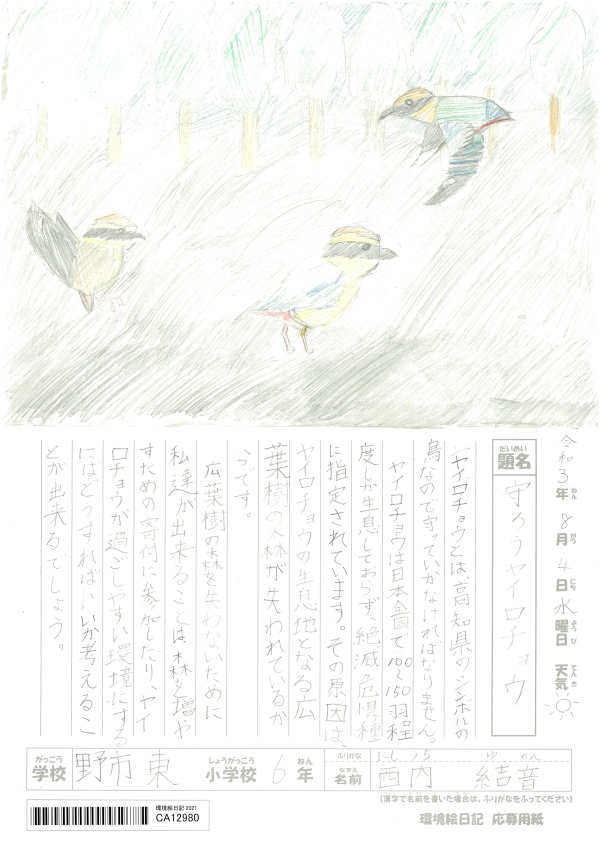 令和3年8月4日水曜日 天気
ねん
がつ
にち
ようび
てんき
だいめい
題名
守ろうヤイロチョウ
ヤイロチョウとは、高知県のシンボルの
鳥なので守っていかなければなりません。
ヤイロチョウは日本全国で100~150羽程
度しか生息しておらず、絶滅危惧種
に指定されています。その原因は、
ヤイロチョウの生息地となる広
葉樹の森が失われているか
らです。
広葉樹の森を失わないために
私達が出来ることは、森を増や
すための寄付に参加したり、ヤイ
ロチョウが過ごしやすい環境にする
にはどうすればいいか考えるこ
とが出来るでしょう。
がっこう
学校
野市東
しょうがっこう
小学校
6
ねん
年
ふりがな
にしうち ゆのん
なまえ
名前
西内 結音
(漢字で名前を書いた場合は、ふりがなをふってください)
環境絵日記 応募用紙
環境絵日記 2021
CA12980